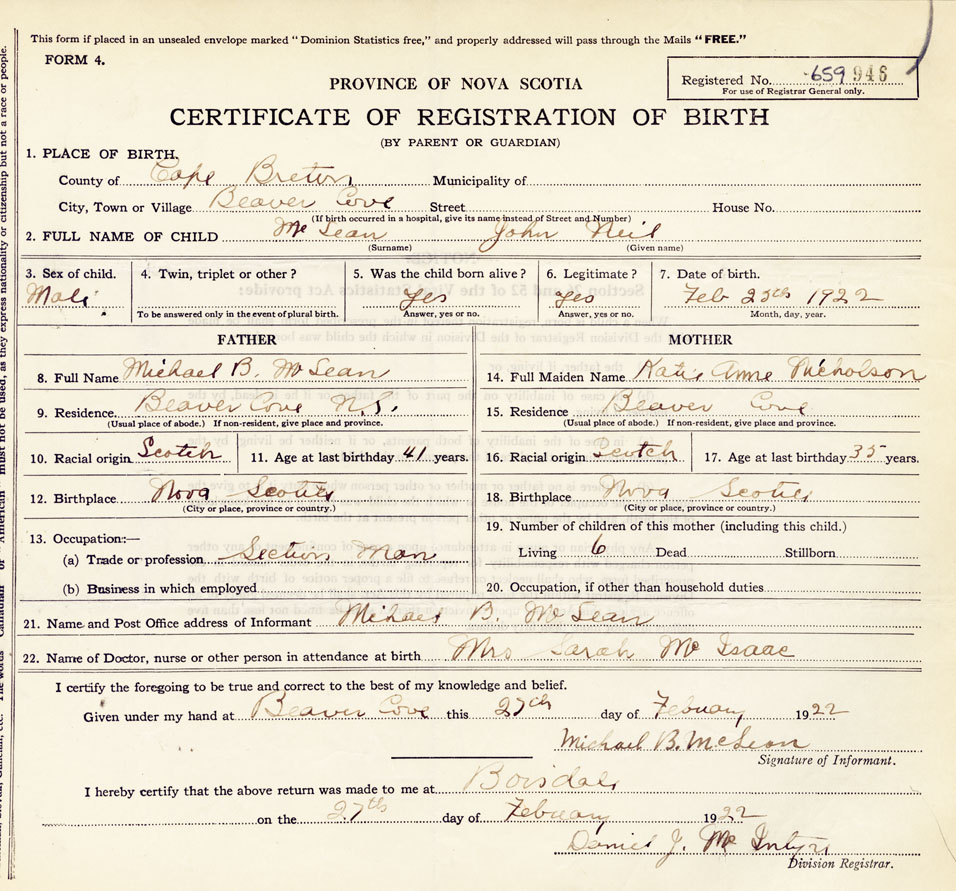 This form if placed in an unsealed envelope marked "Dominion Statistics free," and properly addressed will pass through the Mails "FREE."
FORM 4.
Registered No. 659 946
For use of Registrar General only.
PROVINCE OF NOVA SCOTIA
CERTIFICATE OF REGISTRATION OF BIRTH
(BY PARENT OR GUARDIAN)
1. PLACE OF BIRTH.
County of Cape Breton Municipality of
City, Town or Village Beaver Cove Street House No.
(If birth occurred in a hospital, give its name instead of Street and Number)
2. FULL NAME OF CHILD McLean John Neil
(Surname) (Given name)
3. Sex of child. 4. Twin, triplet or other? 5. Was the child born alive? 6. Legitimate? 7. Date of birth.
Male Yes Yes Feb 25th 1922
To be answered only in the event of plural birth. Answer, yes or no. Answer, yes or no. Month, day, year.
FATHER MOTHER
8. Full Name Michael B. McLean 14. Full Maiden Name Katie Anne Nicholson
9. Residence Beaver Cove N.S. 15. Residence Beaver Cove
(Usual place of abode.) If non-resident, give place and province. (Usual place of abode.) If non-resident, give place and province.
10. Racial origin Scotch 11. Age at last birthday 41 years. 16. Racial origin Scotch 17. Age at last birthday 35 years.
12. Birthplace Nova Scotia 18. Birthplace Nova Scotia
(City or place, province or country.) (City or place, province or country.)
13. Occupation:— 19. Number of children of this mother (including this child.)
(a) Trade or profession Section Man Living 6 Dead Stillborn
(b) Business in which employed 20. Occupation, if other than household duties
21. Name and Post Office address of Informant Michael B. McLean
22. Name of Doctor, nurse or other person in attendance at birth Mrs Sarah McIsaac
I certify the foregoing to be true and correct to the best of my knowledge and belief.
Given under my hand at Beaver Cove this 27th day of Febuary 1922
Michael B. McLean
Signature of Informant.
I hereby certify that the above return was made to me at Boisdale
on the 27th day of Febuary 1922
Daniel J. McIntyre
Division Registrar.
must not be used, as they express nationality or citizenship but not a race or people.